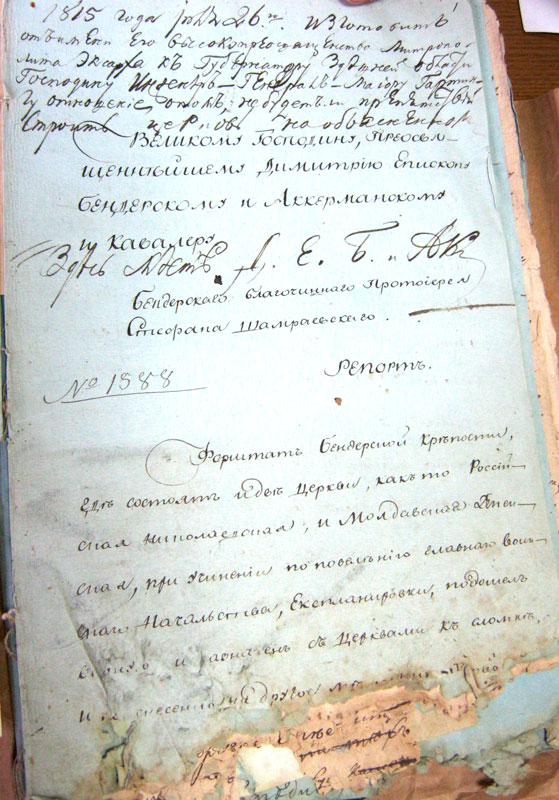 1815 года июля 26.го Изготовить
отъ имени Его высокопреосвященства Митропо-
лита Экзарха къ Губернатору Здѣшней области
Господину Инженеръ-Генералъ-Маіору Гартин-
гу отношение, не будетъ ли препятствія
Строить церковь на объясненном
Великому Господину, Преосвя-
щеннѣйшему Димитрію Епископу
Бендерскому и Аккерманскому
и Кавалеру
Е. Б. и Акк
Бендерскаго благочиннаго Протоіерея
Стефана Шамраевскаго.
№ 1588
Репортъ.
Форштатъ Бендерской Крѣпости,
гдѣ состоятъ и двѣ Церкви, какъ то Россій-
ская Николаевская, и Молдавская
ская, при учиненіи по повелѣнію главнаго воин-
скаго Начальства, Експланировки, подошел
и назначенъ съ Церквами къ сломкѣ,
и къ снесенію на другое